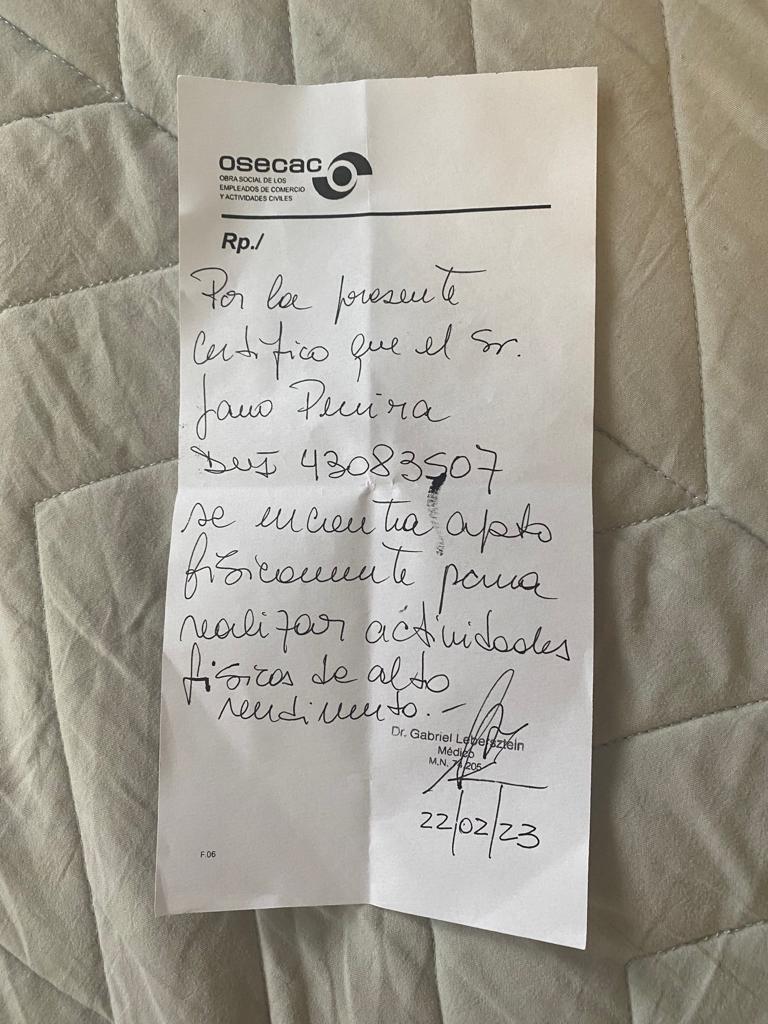 osecac
OBRA SOCIAL DE LOS
EMPLEADOS DE COMERCIO
Y ACTIVIDADES CIVILES
Rp./
Por la presente
certifico que el Sr.
Jano Pereira
DNI 43083507
se encuentra apto
físicamente para
realizar actividades
físicas de alto
rendimiento.-
Dr. Gabriel Lebersztein
Médico
M.N. 205
22/02/23
F.06